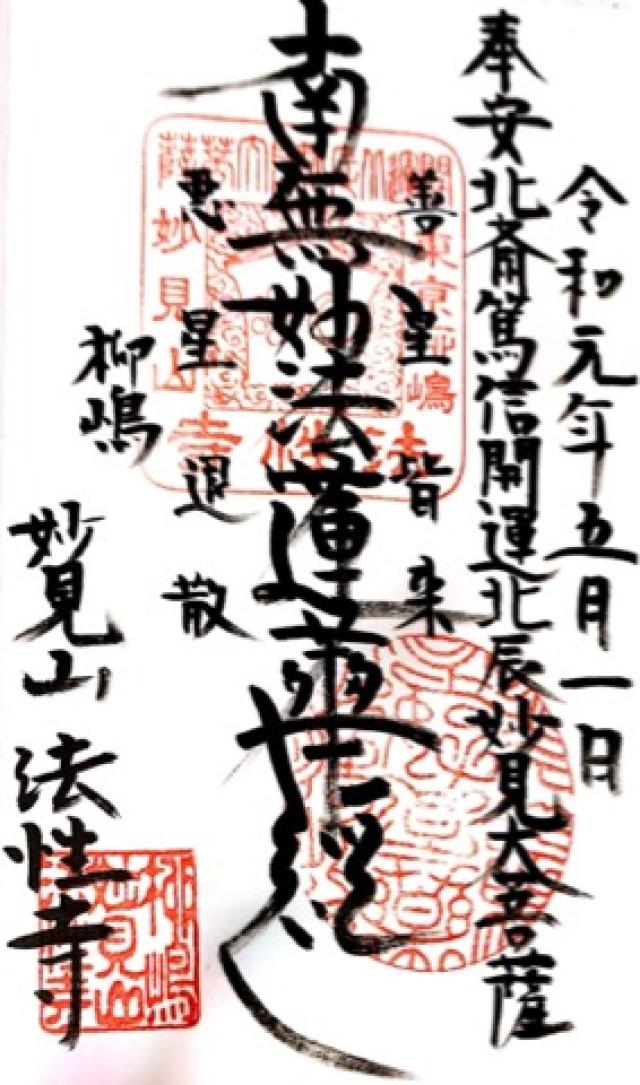 令和元年五月一日
奉安北斎篤信開運北辰妙見大菩薩
善星皆来
南無妙法蓮華経
悪星退散
柳嶋
妙見山法性寺
開運北辰妙見大菩薩
東京柳嶋
妙見山
法性寺
柳嶋
妙見山
法性寺